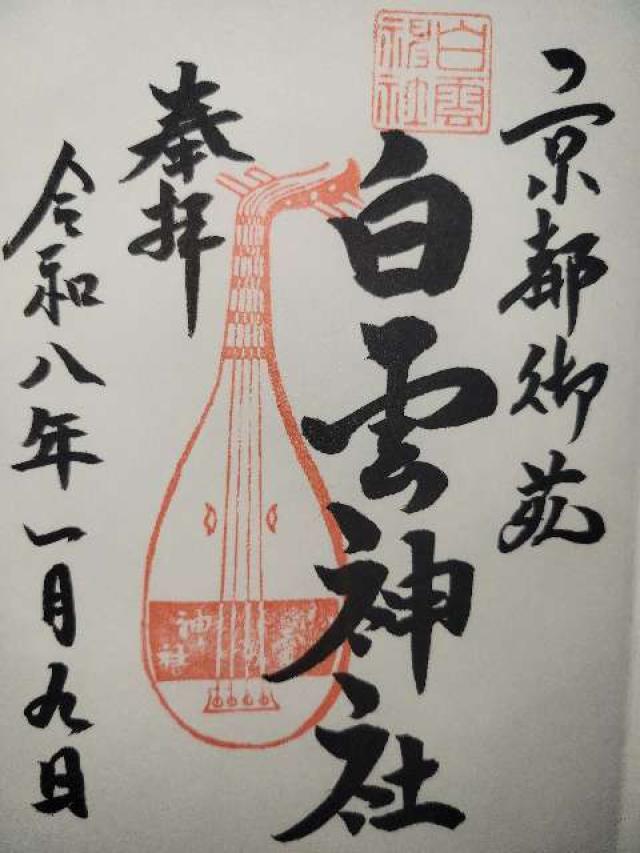 京都御苑
白雲神社
白雲神社
奉拝
神社
令和八年一月九日